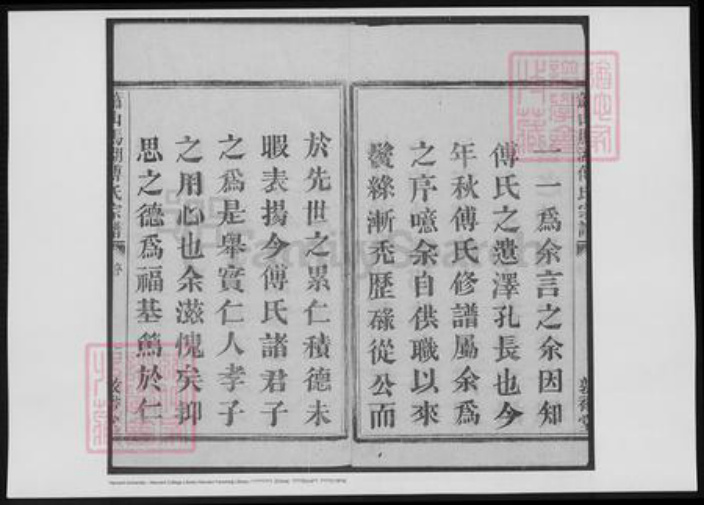 一一爲余言之余因知
傅氏之遺澤孔長也今
年秋傅氏修譜屬余爲
之序噫余自供職以來
鬢絲漸禿歷碌從公而
於先世之累仁積德未
暇表揚今傅氏諸君子
之爲是舉實仁人孝子
之用心也余滋愧矣抑
思之德爲福基篤於仁
蕭山馬湖傅氏宗譜
FamilySearch